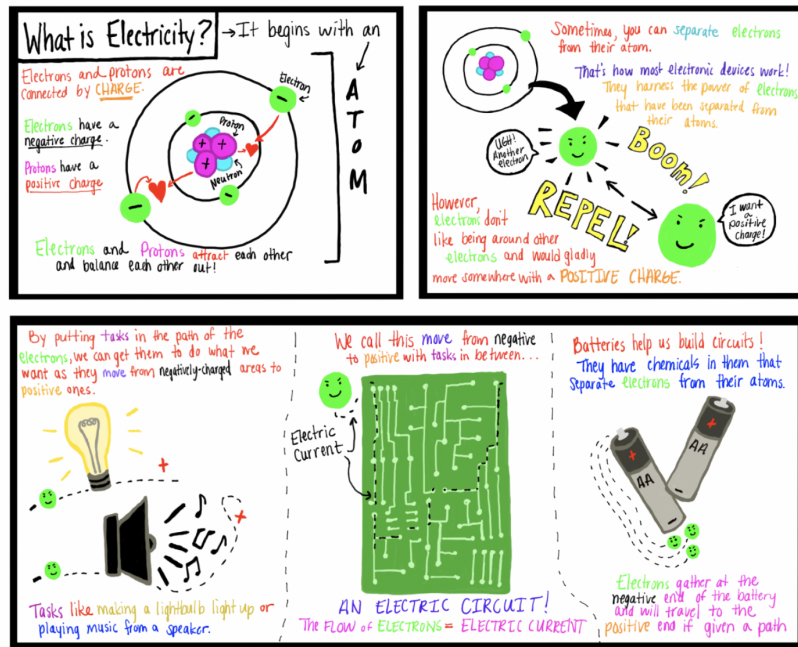 What is Electricity? → It begins with an
ATOM
Electrons and protons are
connected by CHARGE.
Electrons have a
negative charge.
Protons have a
positive charge
Electron
Proton
Neutron
-
-
-
-
+
+
+
Electrons and Protons attract each other
and balance each other out!
Sometimes, you can separate electrons
from their atom.
That's how most electronic devices work!
They harness the power of electrons
that have been separated from
their atoms.
UGH!
Another
electron
BOOM!
REPEL!
I want
a
positive
charge!
However,
electrons don't
like being around other
electrons and would gladly
move somewhere with a POSITIVE CHARGE.
By putting tasks in the path of the
electrons, we can get them to do what we
want as they move from negatively-charged areas to
positive ones.
+
+
-
-
Tasks like making a lightbulb light up or
playing music from a speaker.
We call this move from negative
to positive with tasks in between...
Electric
Current
AN ELECTRIC CIRCUIT!
The FLOW of ELECTRONS = ELECTRIC CURRENT
Batteries help us build circuits!
They have chemicals in them that
separate electrons from their atoms.
+
AA
-
+
AA
-
Electrons gather at the
negative end of the battery
and will travel to the
positive end if given a path